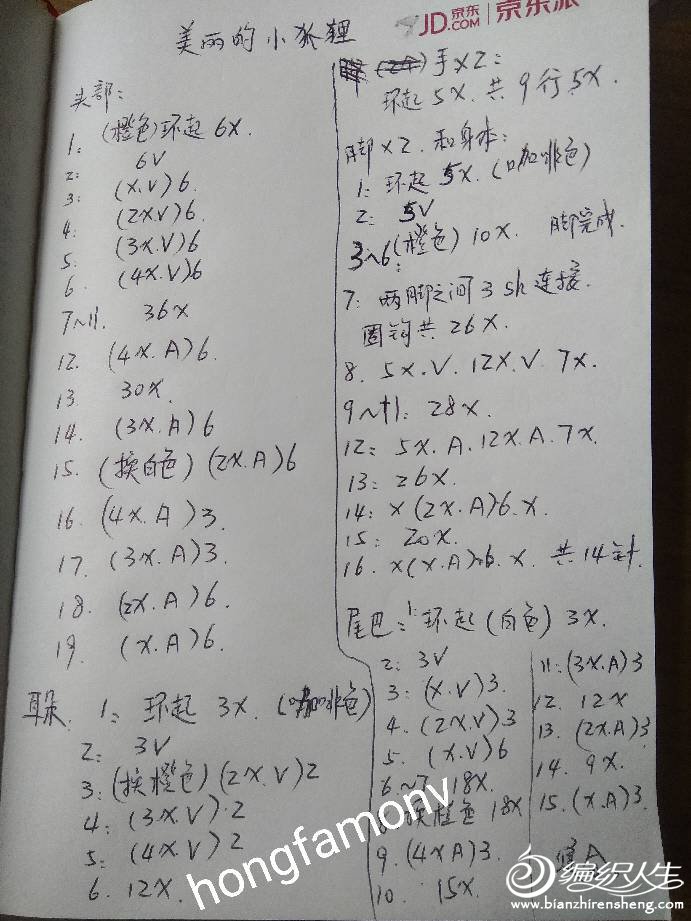 美丽的小狐狸
JD.COM 京东
京东派
头部:
1: (橙色)环起 6X.
2: 6V
3: (X.V)6.
4. (2X.V)6
5. (3X.V)6
6. (4X.V)6
7~11. 36X
12. (4X.A)6.
13. 30X.
14. (3X.A)6
15. (换白色) (2X.A)6
16. (4X.A)3.
17. (3X.A)3.
18. (2X.A)6.
19. (X.A)6.
耳朵. 1: 环起 3X. (咖啡色)
2: 3V
3: (换橙色) (2X.V)2
4: (3X.V).2
5: (4X.V)2
6. 12X.
手X2:
环起 5X. 共9行 5X.
脚X2. 和身体:
1: 环起 5X. (咖啡色)
2: 5V
3~6: (橙色) 10X. 脚完成.
7: 两脚之间 3 sh 连接.
圈钩共 26X.
8. 5X.V. 12X.V. 7X.
9~11: 28X.
12: 5X.A.12X.A.7X.
13: 26X.
14: X(2X.A)6.X.
15: 20X.
16. X(X.A)6.X. 共14针.
尾巴: 1: 环起 (白色) 3X.
2: 3V
3: (X.V)3.
4. (2X.V)3
5. (X.V)6
6.~7. 18X.
8. 换橙色 18X
9. (4XA)3.
10. 15X.
11: (3X.A)3
12. 12X
13. (2X.A)3
14. 9X.
15. (X.A)3.
hongfamony
编织人生
www.bianzhirensheng.com